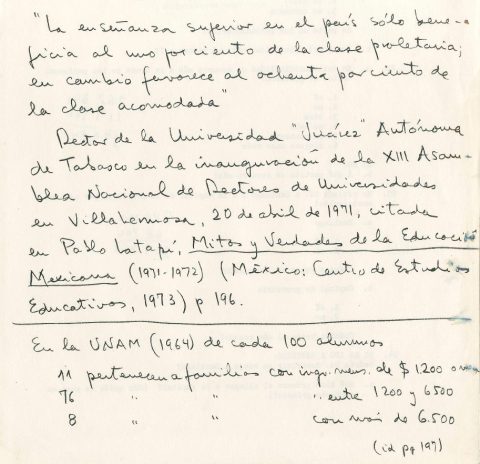 "La enseñanza superior en el país sólo bene-
ficia al uno por ciento de la clase proletaria;
en cambio favorece al ochenta por ciento de
la clase acomodada"
Rector de la Universidad "Juárez" Autónoma
de Tabasco en la inauguración de la XIII Asam-
blea Nacional de Rectores de Universidades
en Villahermosa, 20 de abril de 1971, citada
en Pablo Latapí, Mitos y Verdades de la Educació
Mexicana (1971-1972) (México: Centro de Estudios
Educativos, 1973) p 196.
En la UNAM (1964) de cada 100 alumnos
11 pertenecen a familias con ingr. mens. de $ 1200 o
76 " " " entre 1200 y 6500
8 " " con más de 6.500
(id pg 197)